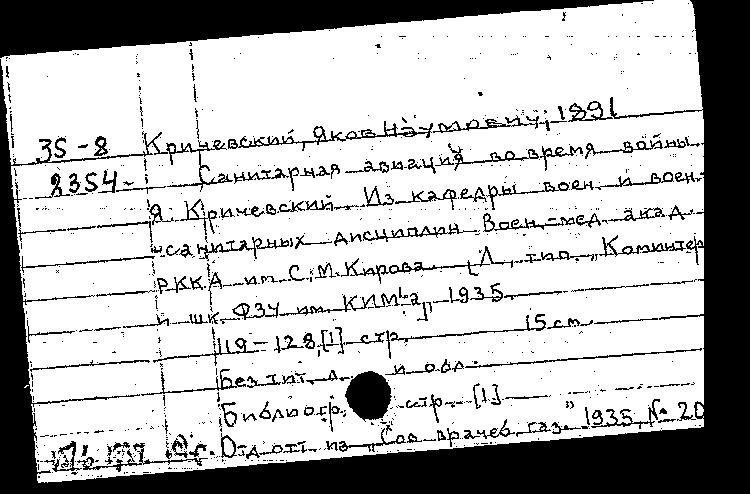 35-8 Кричевский, Яков Наумович, 1891
2354- Санитарная авиация во время войны.
Я. Кричевский. Из кафедры воен. и воен.-
-санитарных дисциплин Воен.-мед. акад.
РККА им. С. М. Кирова. [Л., тип. „Коминтер
и шк. ФЗУ им. КИМ'а], 1935.
119-128, [1] стр. 15 см.
Без тит. л. и обл.
Библиогр. стр. [1]
Отд. отт. из „Сов. врачеб. газ.” 1935, № 20